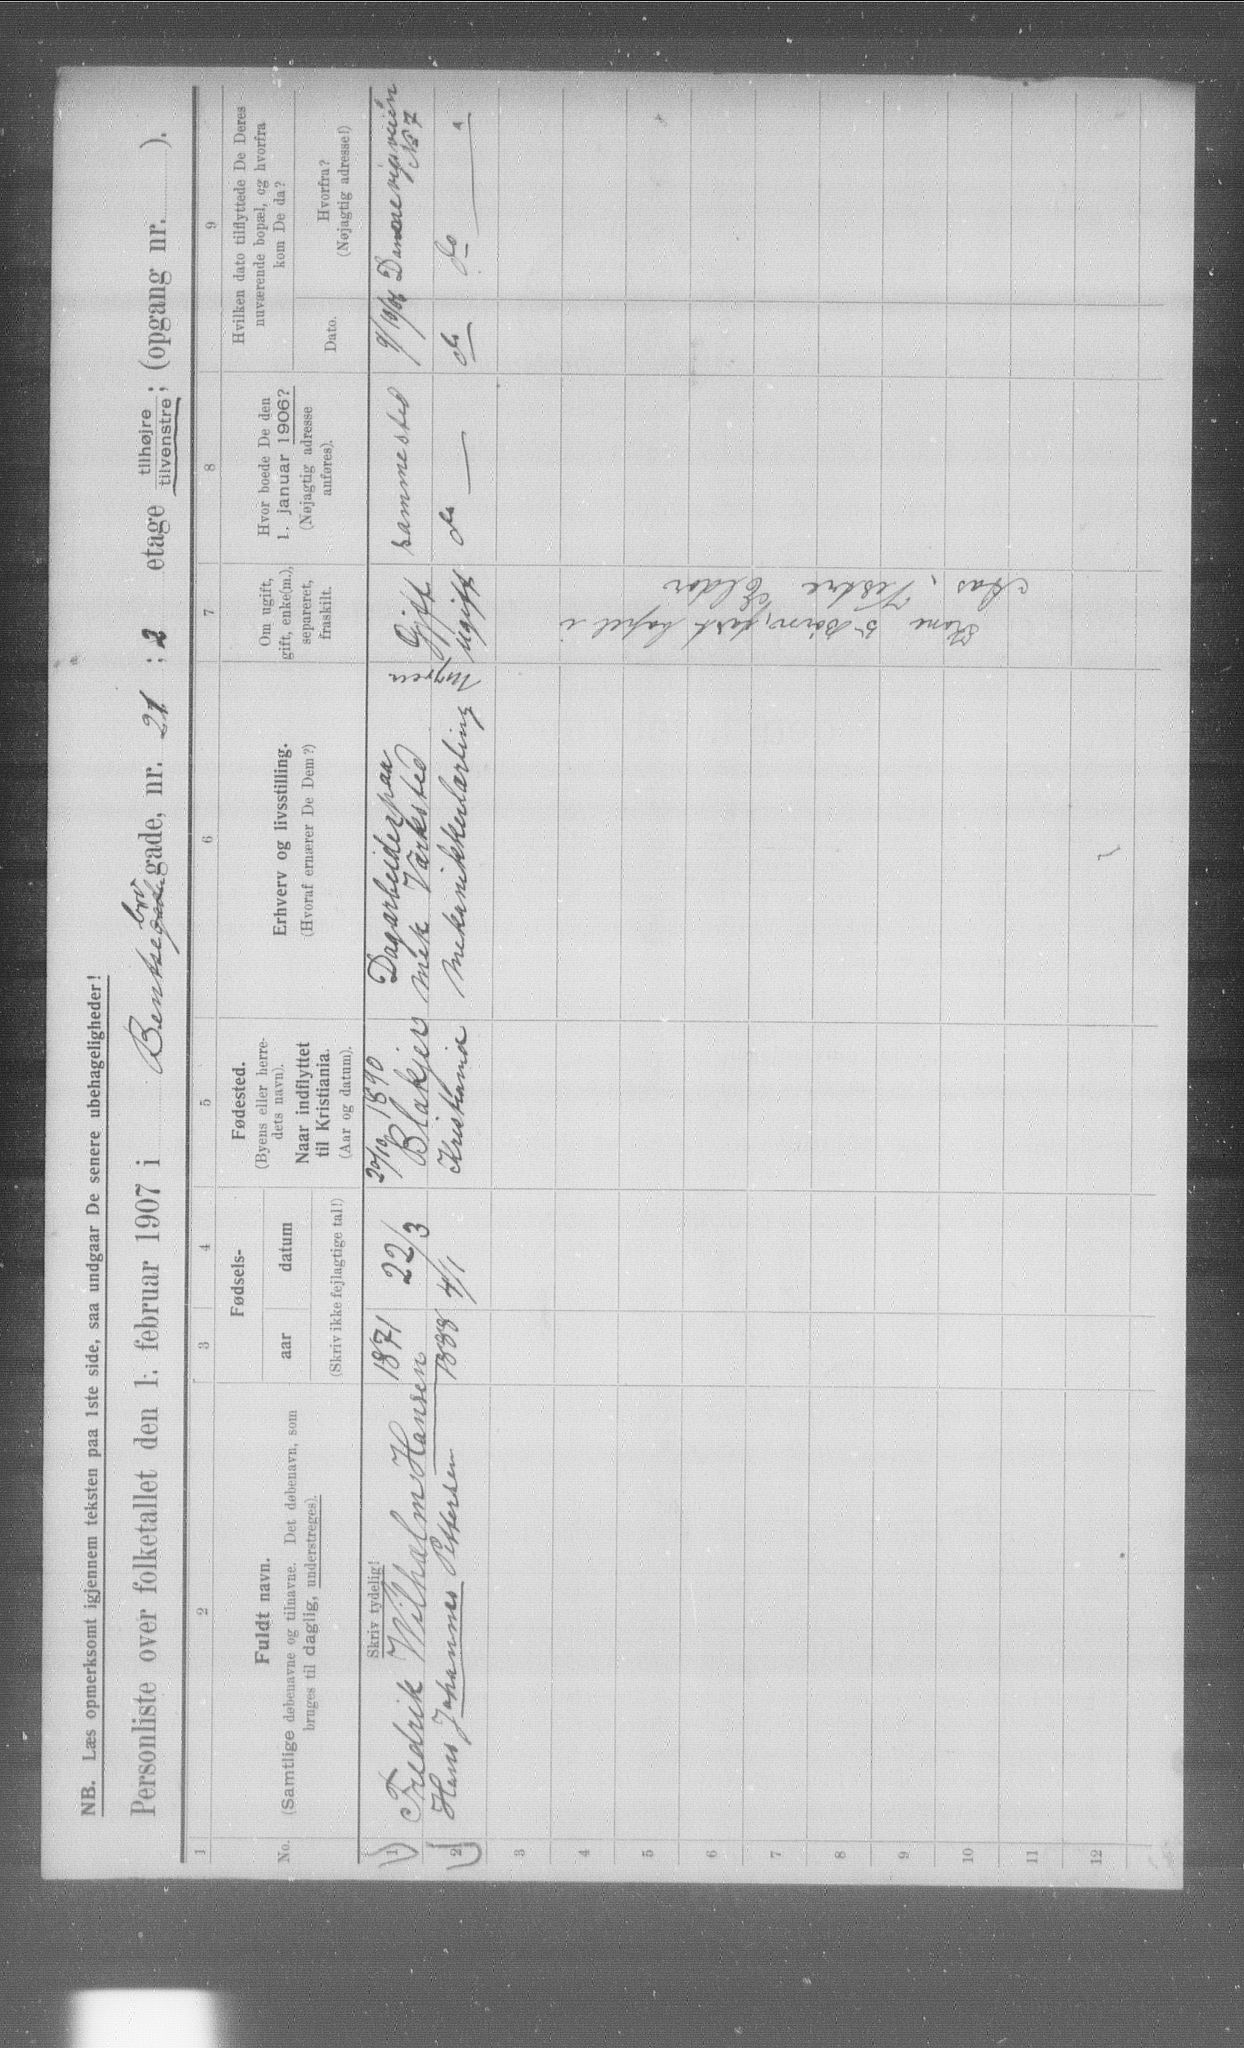 NB. Læs opmerksomt igjennem teksten paa 1ste side, saa undgaar De senere ubehageligheder!
Personliste over folketallet den 1. februar 1907 i Bentsebro gade, nr. 21 ; 2 etage tilhøjre tilvenstre ; (opgang nr. ).
1 2 3 4 5 6 7 8 9
No.
Fuldt navn.
(Samtlige døbenavne og tilnavne. Det døbenavn, som
bruges til daglig, understreges).
Fødsels-
aar datum
(Skriv ikke fejlagtige tal!)
Fødested.
(Byens eller herre-
dets navn).
Naar indflyttet
til Kristiania.
(Aar og datum).
Erhverv og livsstilling.
(Hvoraf ernærer De Dem?)
Om ugift,
gift, enke(m.),
separeret,
fraskilt.
Hvor boede De den
1. januar 1906?
(Nøjagtig adresse
anføres).
Hvilken dato tilflyttede De Deres
nuværende bopæl, og hvorfra
kom De da?
Dato.
Hvorfra?
(Nøjagtig adresse!)
Skriv tydelig!
1 Fredrik Wilhælm Hansen 1871 22/3 20/10 1890 Blakjer Dagarbeider paa mek Værksted Myren Gift sammested 9/10/ Danevigsveien No 7
2 Hans Johannes Pettersen 1888 4/1 Kristiania mekanikkerlærling ugift do — do do — "
3
4
5
6
7
8
9
10
11
12
Kone
5 Børn, fast bopel i
Aas, Vestre